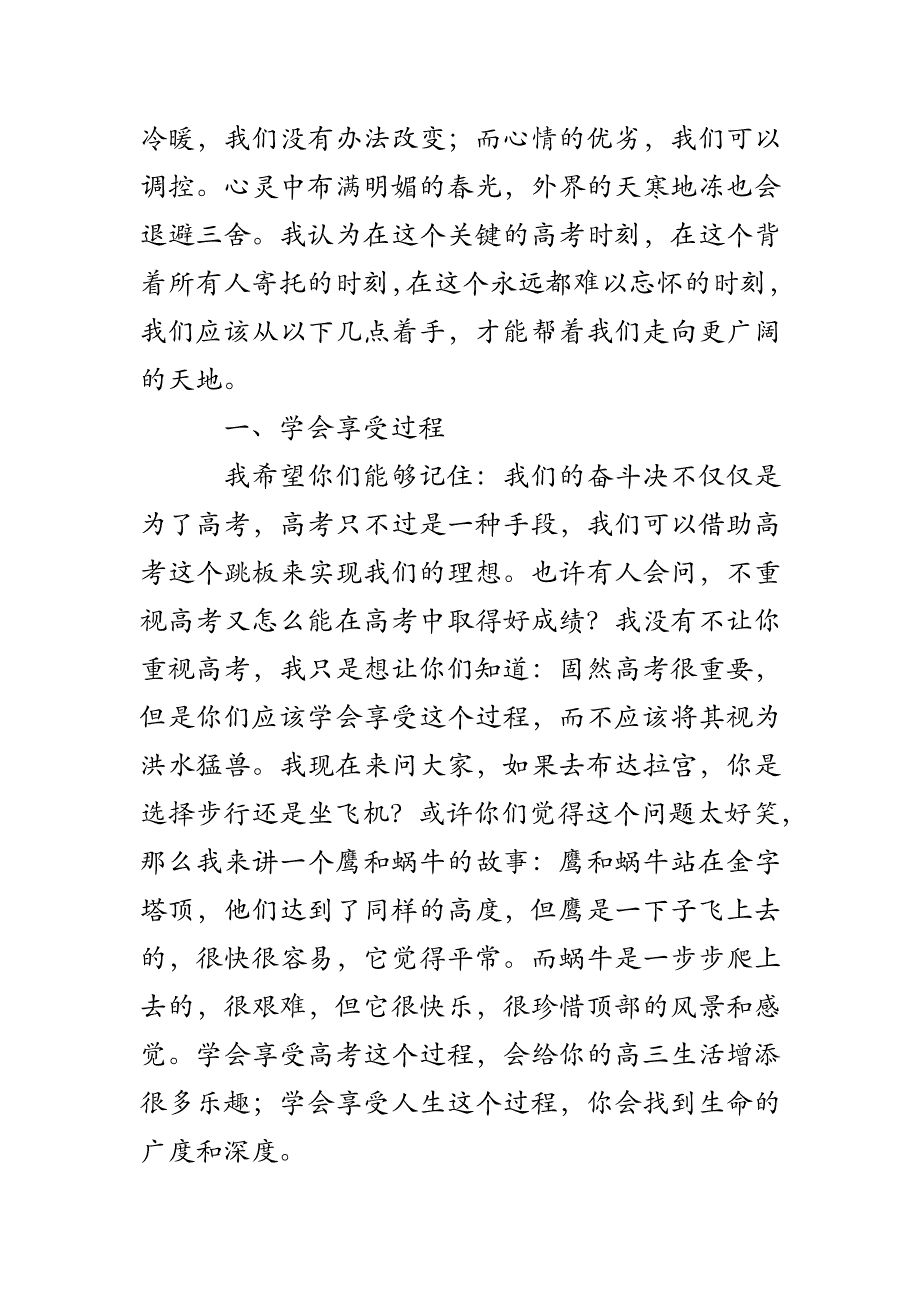 冷暖，我们没有办法改变；而心情的优劣，我们可以
调控。心灵中布满明媚的春光，外界的天寒地冻也会
退避三舍。我认为在这个关键的高考时刻，在这个背
着所有人寄托的时刻，在这个永远都难以忘怀的时刻，
我们应该从以下几点着手，才能帮着我们走向更广阔
的天地。
一、学会享受过程
我希望你们能够记住：我们的奋斗决不仅仅是
为了高考，高考只不过是一种手段，我们可以借助高
考这个跳板来实现我们的理想。也许有人会问，不重
视高考又怎么能在高考中取得好成绩？我没有不让你
重视高考，我只是想让你们知道：固然高考很重要，
但是你们应该学会享受这个过程，而不应该将其视为
洪水猛兽。我现在来问大家，如果去布达拉宫，你是
选择步行还是坐飞机？或许你们觉得这个问题太好笑，
那么我来讲一个鹰和蜗牛的故事：鹰和蜗牛站在金字
塔顶，他们达到了同样的高度，但鹰是一下子飞上去
的，很快很容易，它觉得平常。而蜗牛是一步步爬上
去的，很艰难，但它很快乐，很珍惜顶部的风景和感
觉。学会享受高考这个过程，会给你的高三生活增添
很多乐趣；学会享受人生这个过程，你会找到生命的
广度和深度。